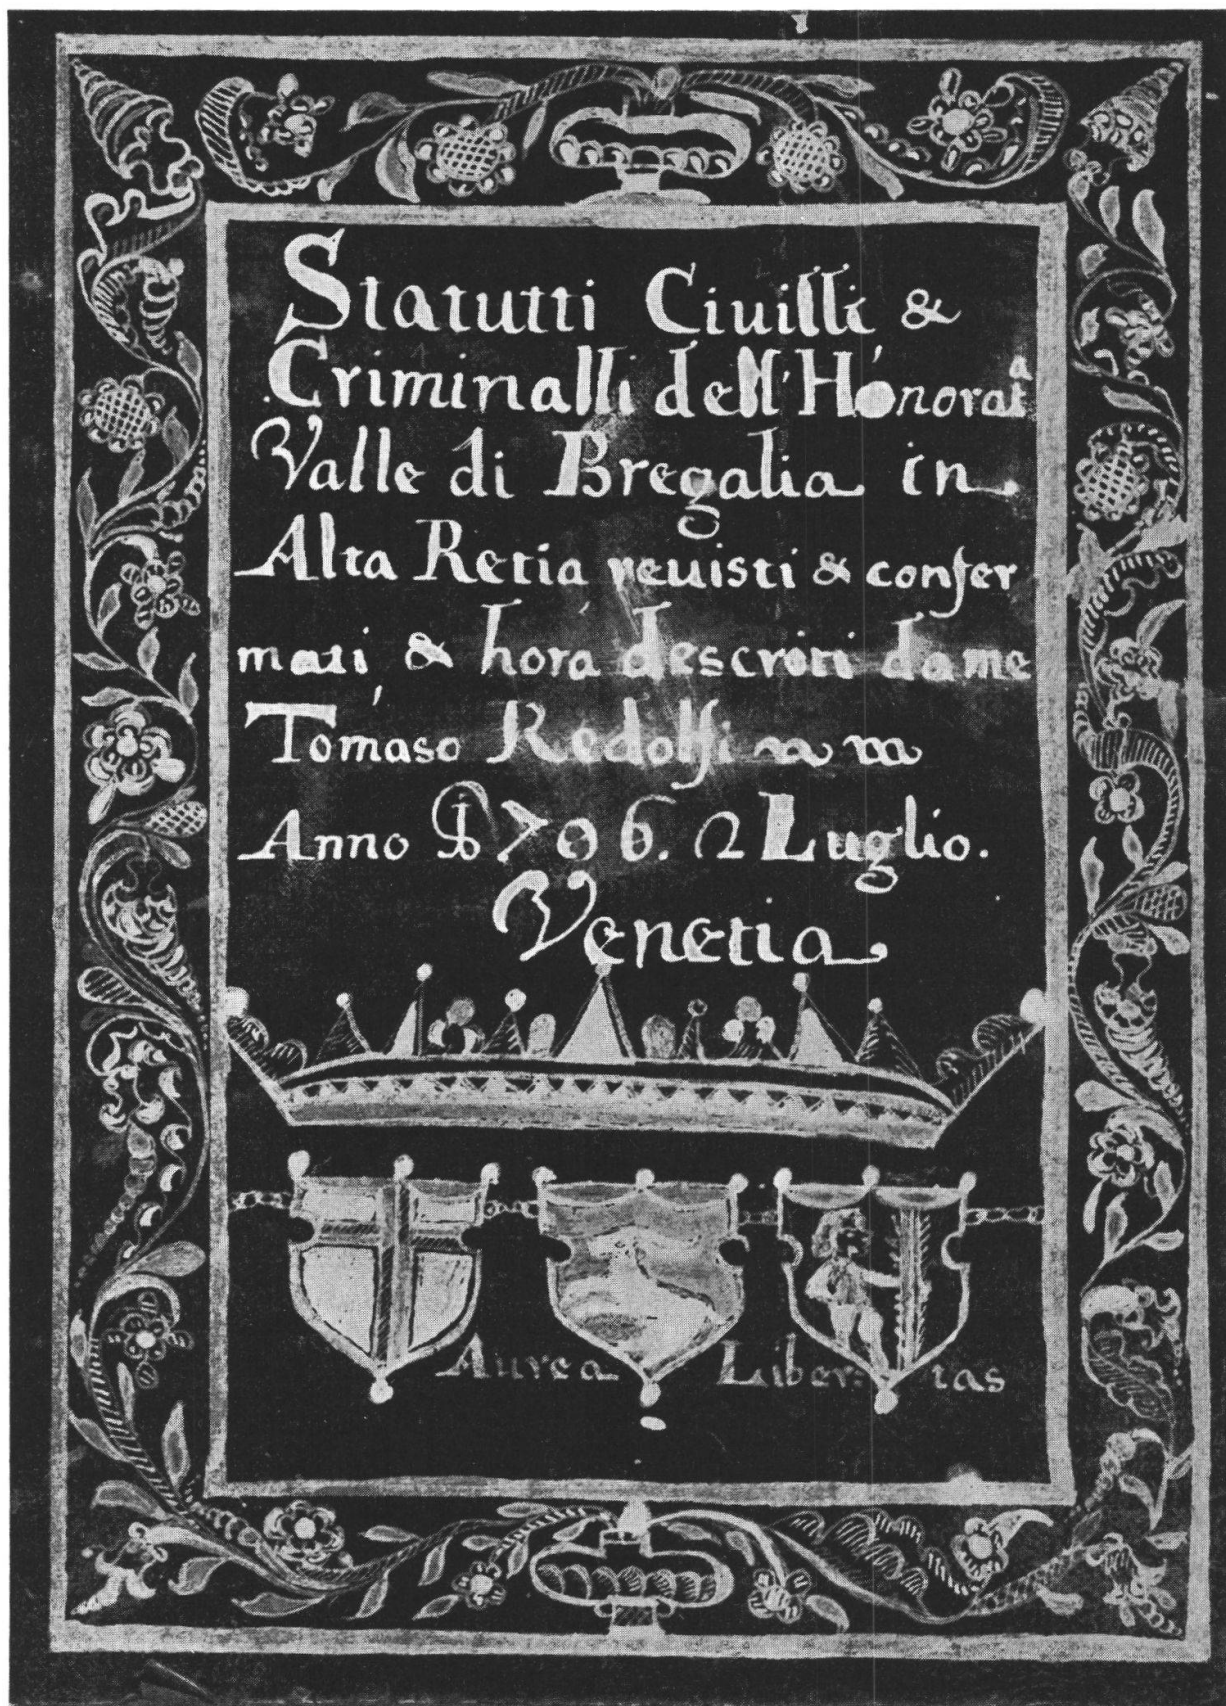 Statutti Ciuilli &
Criminalli dell'Honorata
Valle di Bregalia in
Alta Retia reuisti & confer
mati & hora descriti da me
Tomaso Redolfi
Anno 1706. 2 Luglio.
Venetia
Aurea Libertas